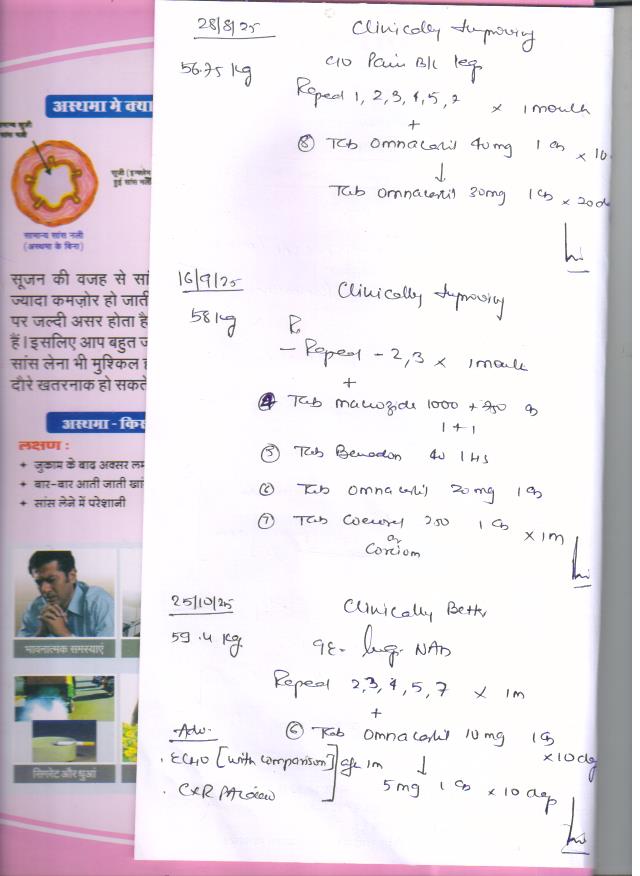 अस्थमा मे क्या
सामान्य सांस नली
(अस्थमा के बिना)
सूजन की वजह से सां
ज्यादा कमज़ोर हो जाती
पर जल्दी असर होता है
हैं। इसलिए आप बहुत ज
सांस लेना भी मुश्किल ह
दौरे खतरनाक हो सकते
अस्थमा - किस
लक्षण :
+ जुकाम के बाद अक्सर लम
+ बार-बार आती जाती खां
+ सांस लेने में परेशानी
भावनात्मक समस्याएं
सिगरेट और धुआं
28/8/25 Clinically Improving
56.75 kg c/o Pain B/L legs
Repeat 1, 2, 3, 4, 5, 7 x 1 month
+
⑧ Tab Omnacortil 40mg 1 OD x 10
↓
Tab Omnacortil 30mg 1 OD x 20 da
16/9/25 Clinically Improving
58 kg Rx
- Repeat - 2, 3 x 1 month
+
④ Tab Macozide 1000 + 750
1 + 1
⑤ Tab Benadon 40 1 HS
⑥ Tab Omnacortil 20mg 1 OD
⑦ Tab 250 1 OD x 1m
or
25/10/25 Clinically Better
59.4 kg NAD
Repeat 2, 3, 4, 5, 7 x 1m
+
Adv. ⑥ Tab Omnacortil 10mg 1 OD x 10 day
. ECHO [with comparison] 1m ↓
. CXR PA view 5mg 1 OD x 10 day